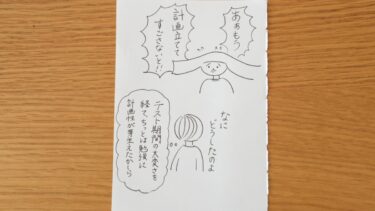 ああもう
計画立てて
すごさないと!!
なに
どうしたのよ
テスト期間の大変さを
経て、ちっとは勉強に
計画性が芽生えたかしら